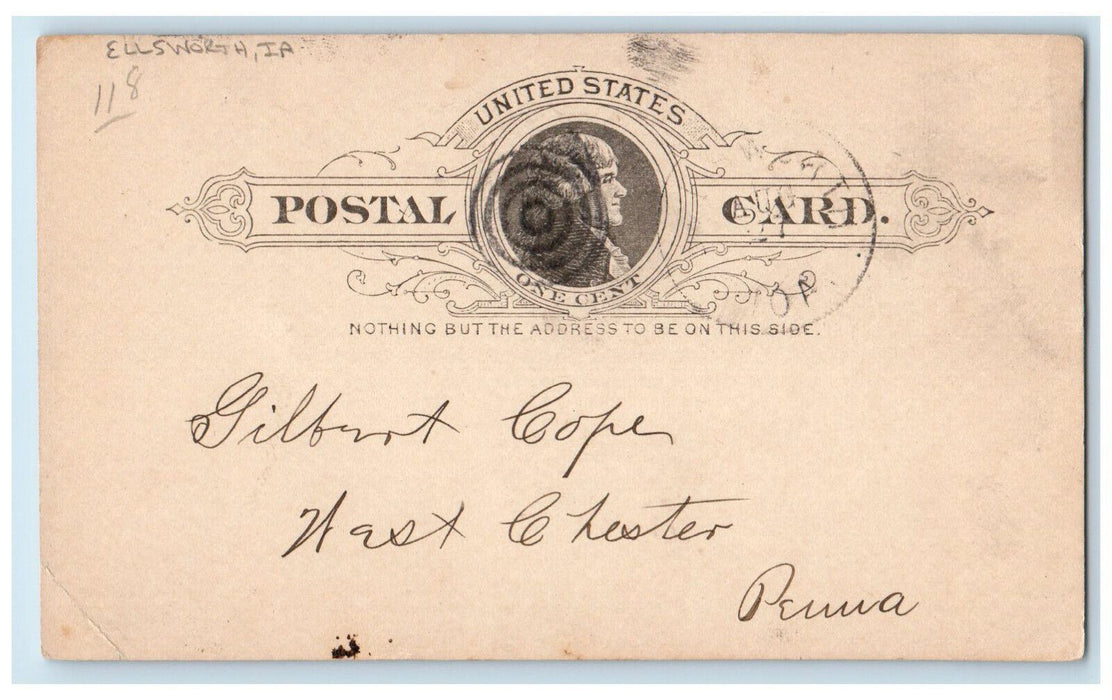 ELLSWORTH, IA
118
UNITED STATES
POSTAL CARD.
ONE CENT
NOTHING BUT THE ADDRESS TO BE ON THIS SIDE.
AUG
Gilbert Cope
West Chester
Penna